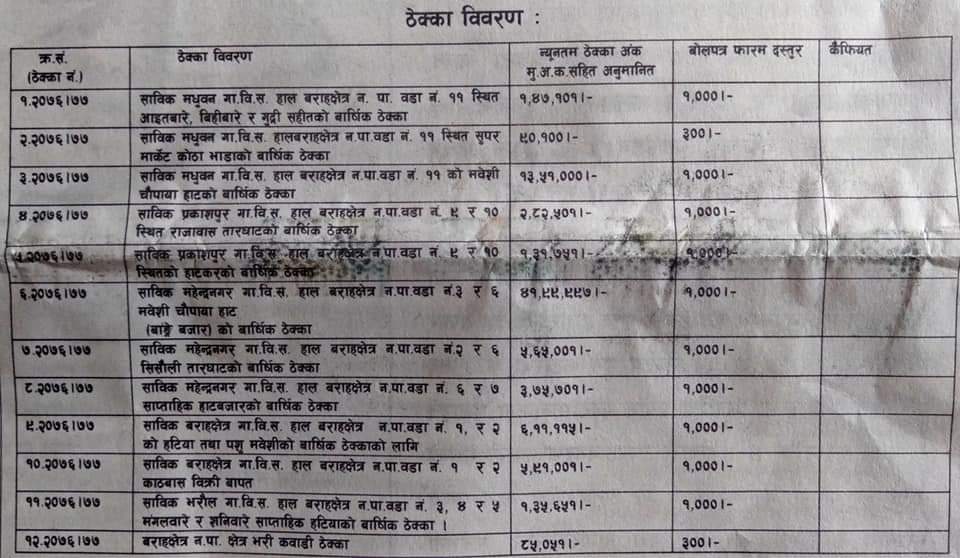 ठेक्का विवरण :
क्र.सं. ठेक्का विवरण न्यूनतम ठेक्का अंक बोलपत्र फारम दस्तुर कैफियत
(ठेक्का नं.) मु.अ.क.सहित अनुमानित
१.२०७६।७७ साविक मधुवन गा.वि.स. हाल बराहक्षेत्र न. पा. वडा नं. ११ स्थित १,४७,१०१।- १,०००।-
आइतबारे, बिहीबारे र गुद्री सहीतको बार्षिक ठेक्का
२.२०७६।७७ साविक मधुवन गा.वि.स. हालबराहक्षेत्र न.पा.वडा नं. ११ स्थित सुपर ९०,१००।- ३००।-
मार्केट कोठा भाडाको बार्षिक ठेक्का
३.२०७६।७७ साविक मधुवन गा.वि.स. हाल बराहक्षेत्र न.पा.वडा नं. ११ को मवेशी १३,५१,०००।- १,०००।-
चौपाया हाटको बार्षिक ठेक्का
४.२०७६।७७ साविक प्रकाशपुर गा.वि.स. हाल बराहक्षेत्र न.पा.वडा नं. ९ र १० २,८२,५०१।- १,०००।-
स्थित राजावास तारघाटको बार्षिक ठेक्का
५.२०७६।७७ साविक प्रकाशपुर गा.वि.स. हाल बराहक्षेत्र न.पा.वडा नं. ९ र १० १,३१,७५१।- १,०००।-
स्थितको हाटकरको बार्षिक ठेक्का
६.२०७६।७७ साविक महेन्द्रनगर गा.वि.स. हाल बराहक्षेत्र न.पा.वडा नं.३ र ६ ४१,९९,९९७।- १,०००।-
मवेशी चौपाया हाट
(बाङ्गे बजार) को बार्षिक ठेक्का
७.२०७६।७७ साविक महेन्द्रनगर गा.वि.स. हाल बराहक्षेत्र न.पा.वडा नं.२ र ६ ५,६५,००१।- १,०००।-
सिसौली तारघाटको बार्षिक ठेक्का
८.२०७६।७७ साविक महेन्द्रनगर गा.वि.स. हाल बराहक्षेत्र न.पा.वडा नं. ६ र ७ ३,७५,७०१।- १,०००।-
साप्ताहिक हाटबजारको बार्षिक ठेक्का
९.२०७६।७७ साविक बराहक्षेत्र गा.वि.स. हाल बराहक्षेत्र न.पा.वडा नं. १, र २ ६,११,११५।- १,०००।-
को हटिया तथा पशु मवेशीको बार्षिक ठेक्काको लागि
१०.२०७६।७७ साविक बराहक्षेत्र गा.वि.स. हाल बराहक्षेत्र न.पा.वडा नं. १ र २ ५,९१,००१।- १,०००।-
काठबास विक्री बापत
११.२०७६।७७ साविक भरौल गा.वि.स. हाल बराहक्षेत्र न.पा.वडा नं. ३, ४ र ५ १,३५,६५१।- १,०००।-
मंगलवारे र शनिवारे साप्ताहिक हटियाको बार्षिक ठेक्का ।
१२.२०७६।७७ बराहक्षेत्र न.पा. क्षेत्र भरी कवाडी ठेक्का ८५,०५१।- ३००।-